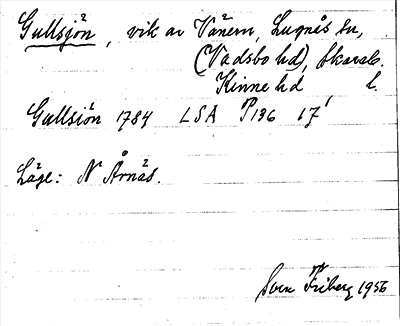 Gullsjön, vik av Vänern, Lugnås sn,
(Vadsbo hd), Skarab.
Kinne hd l.
Gullsiön 1784 LSA P136 17¹
Läge: N Årnäs.
Sven Friberg 1956